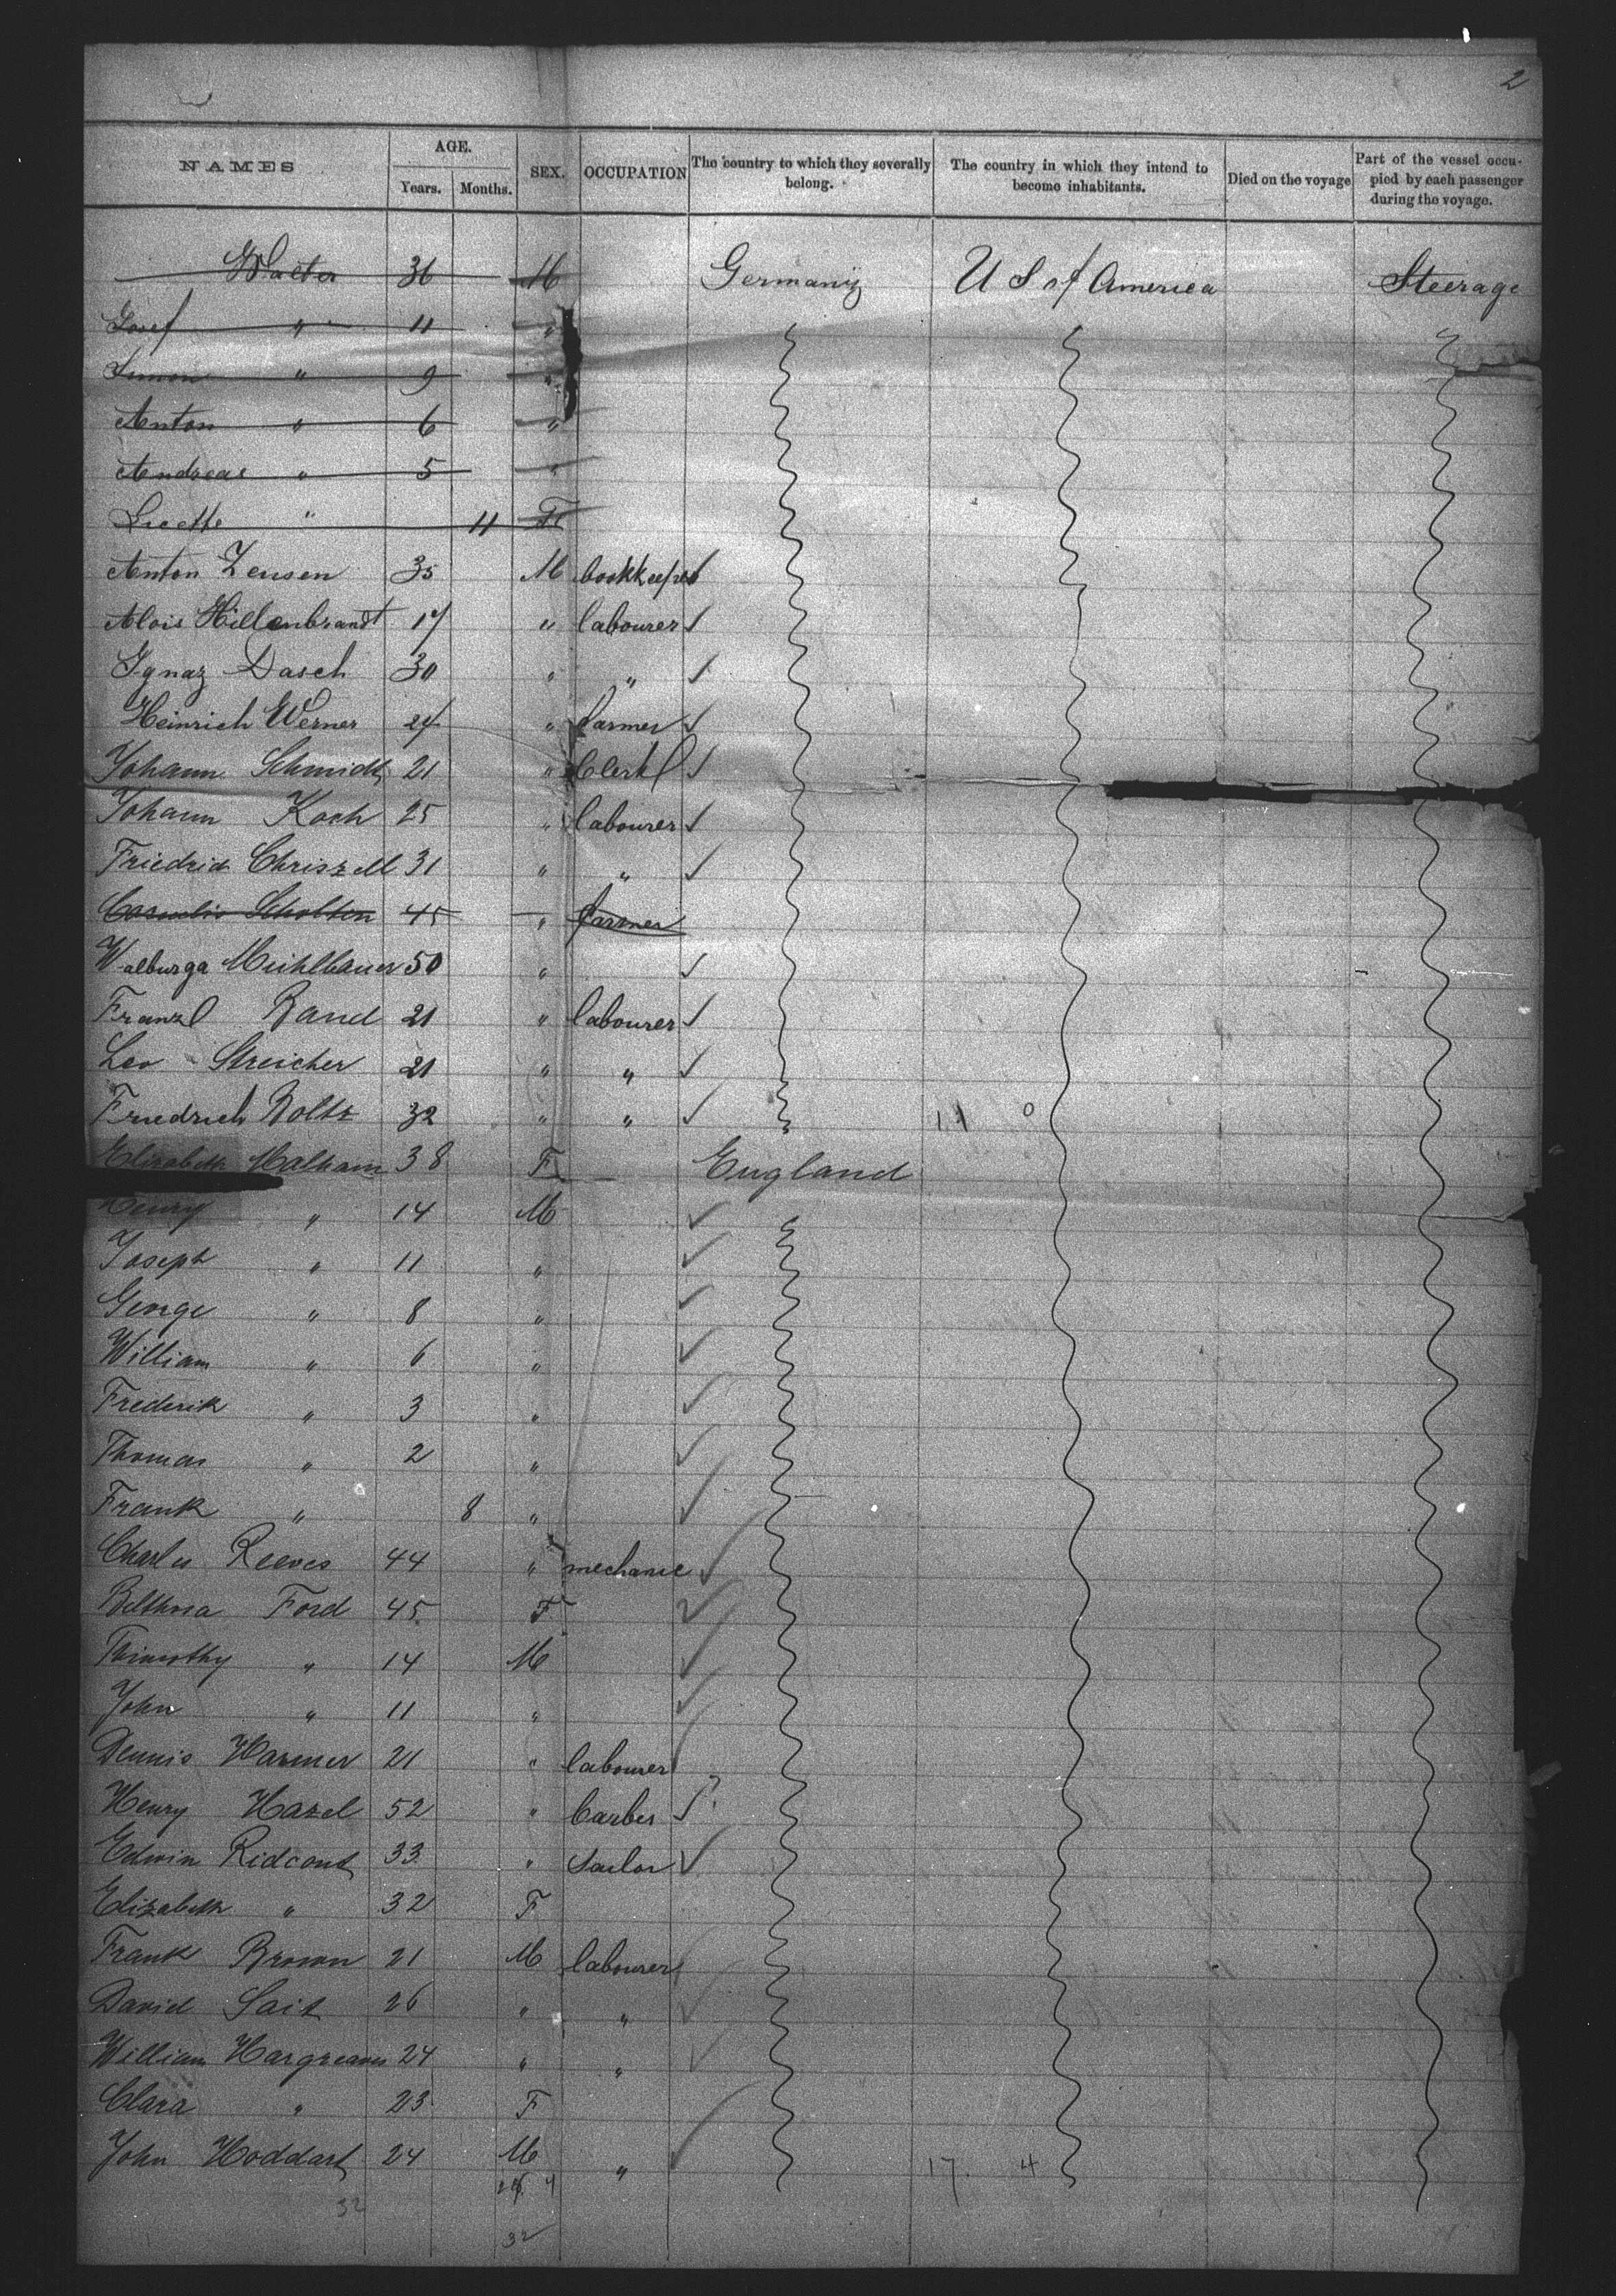 2
NAMES AGE. Years. Months. SEX. OCCUPATION The country to which they severally belong. The country in which they intend to become inhabitants. Died on the voyage Part of the vessel occupied by each passenger during the voyage.
Walter 36 M Germany U S of America Steerage
Josef " 11 "
Simon " 9 "
Anton " 6 "
Andreas " 5 "
Lisette " 11 F
Anton Zensen 35 M bookkeeper
Alois Hillenbrandt 17 " labourer
Ignaz Dasch 30 " "
Heinrich Werner 24 " farmer
Johann Schmidt 21 " Clerk
Johann Koch 25 " labourer
Friedrich 31 " "
Scholten 45 " farmer
Walburga Muhlbauer 50 "
Franzl Band 21 " labourer
Leo Streicher 21 " "
Friedrich Boltz 32 " " " 11 0
Elizabeth Malham 38 F England
Henry " 14 M
Joseph " 11 "
George " 8 "
William " 6 "
Frederik " 3 "
Thomas " 2 "
Frank " 8 "
Charles Reeves 44 " mechanic
Ford 45 F
Thimothy " 14 M
John " 11 "
Dennis Harmer 21 " labourer
Henry Hazel 52 " barber
Edwin Ridcout 33 " sailor
Elizabeth " 32 F
Frank Brown 21 M labourer
David Sait 26 " "
William Hargreaves 24 " "
Clara " 23 F
John Hoddart 24 M " 17. 4
32
32